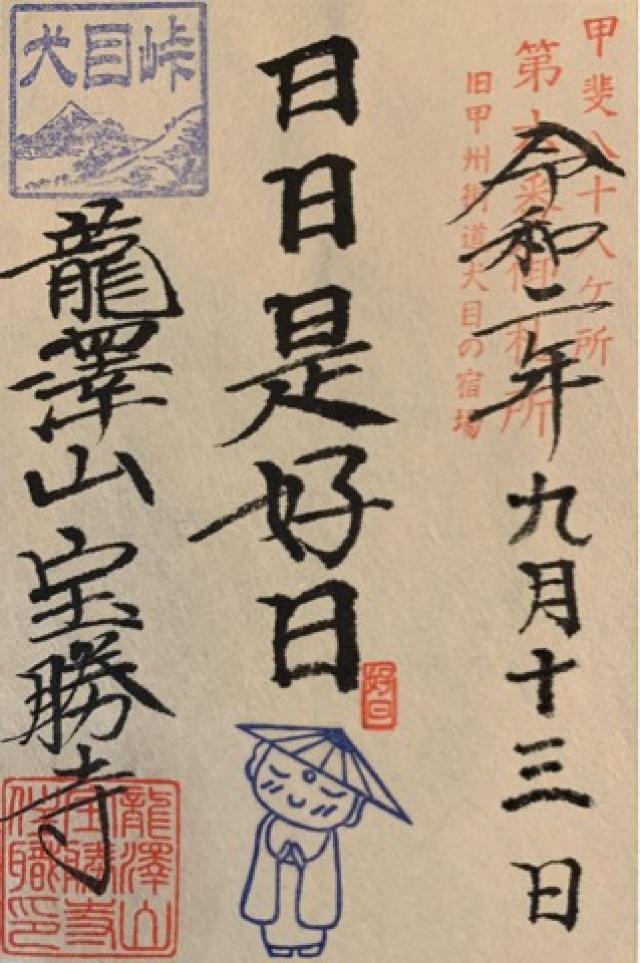 甲斐八十八ケ所
第六番御札所
旧甲州街道犬目の宿場
令和二年九月十三日
日日是好日
好日
犬目峠
龍澤山宝勝寺
龍澤山
住勝寺